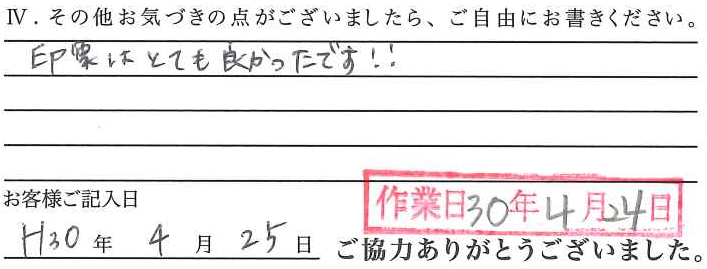 Ⅳ．その他お気づきの点がございましたら、ご自由にお書きください。
印象はとても良かったです!!
お客様ご記入日
作業日30年4月24日
H30年4月25日
ご協力ありがとうございました。